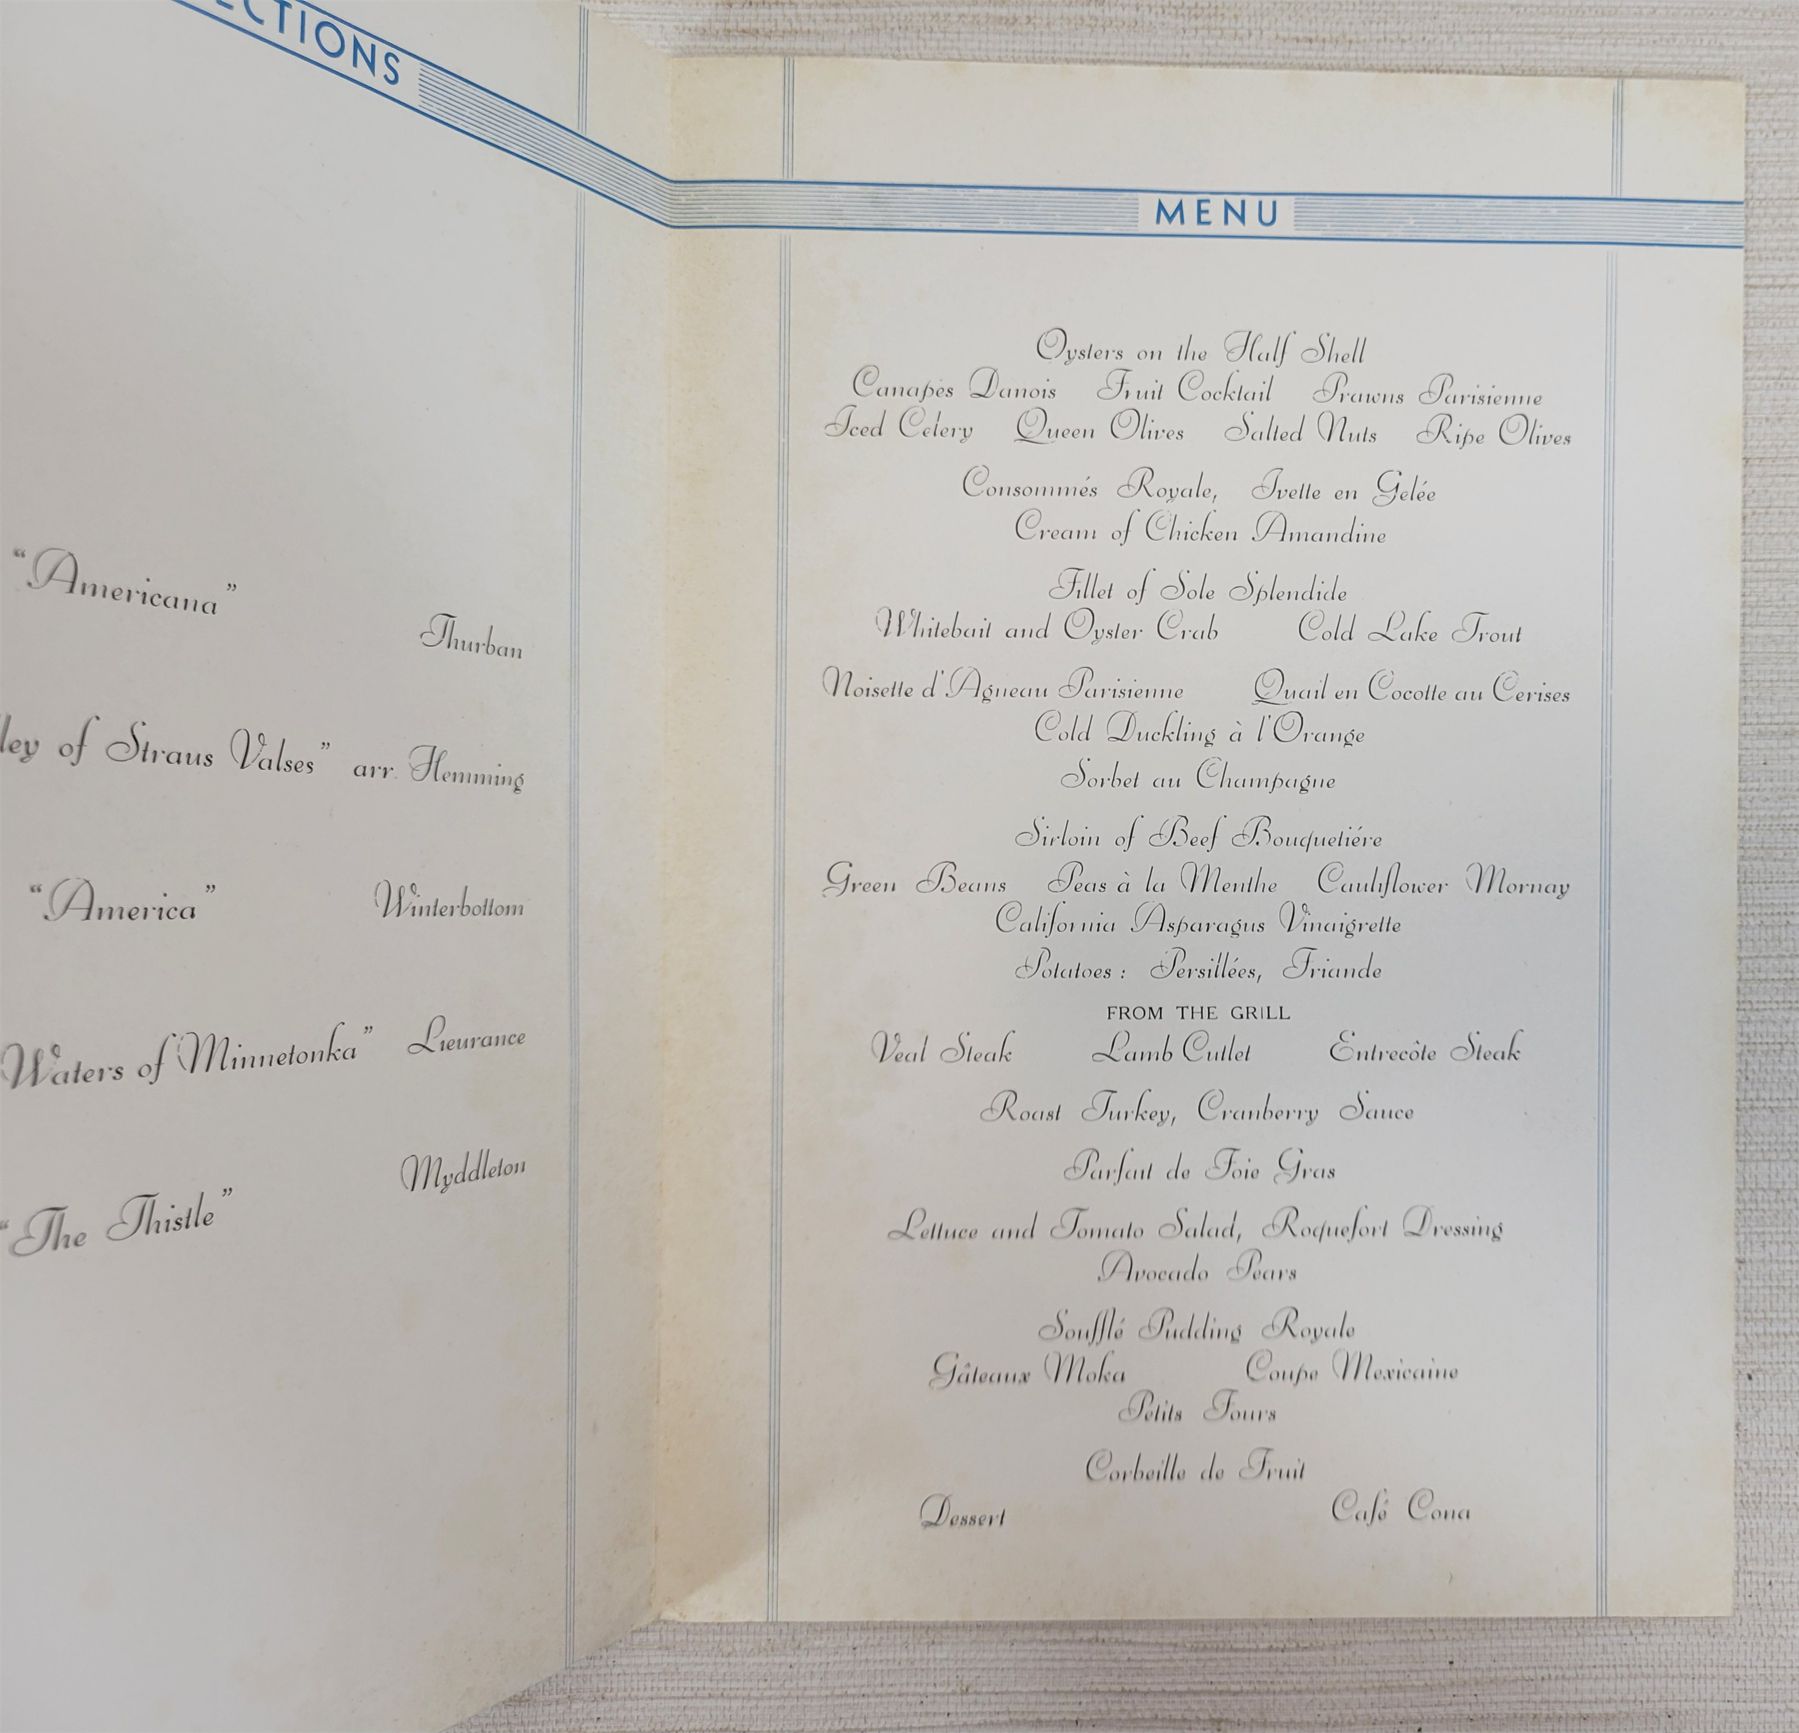 CTIONS
"Americana"
Thurban
ley of Straus Valses" arr. Hemming
"America" Winterbottom
Waters of Minnetonka" Lieurance
Myddleton
"The Thistle"
MENU
Oysters on the Half Shell
Canapés Danois Fruit Cocktail Prawns Parisienne
Iced Celery Queen Olives Salted Nuts Ripe Olives
Consommés Royale, Ivette en Gelée
Cream of Chicken Amandine
Fillet of Sole Splendide
Whitebait and Oyster Crab Cold Lake Trout
Noisette d'Agneau Parisienne Quail en Cocotte au Cerises
Cold Duckling à l'Orange
Sorbet au Champagne
Sirloin of Beef Bouquetiére
Green Beans Peas à la Menthe Cauliflower Mornay
California Asparagus Vinaigrette
Potatoes: Persillées, Friande
FROM THE GRILL
Veal Steak Lamb Cutlet Entrecôte Steak
Roast Turkey, Cranberry Sauce
Parfait de Foie Gras
Lettuce and Tomato Salad, Roquefort Dressing
Avocado Pears
Soufflé Pudding Royale
Gâteaux Moka Coupe Mexicaine
Petits Fours
Corbeille de Fruit
Dessert Café Cona